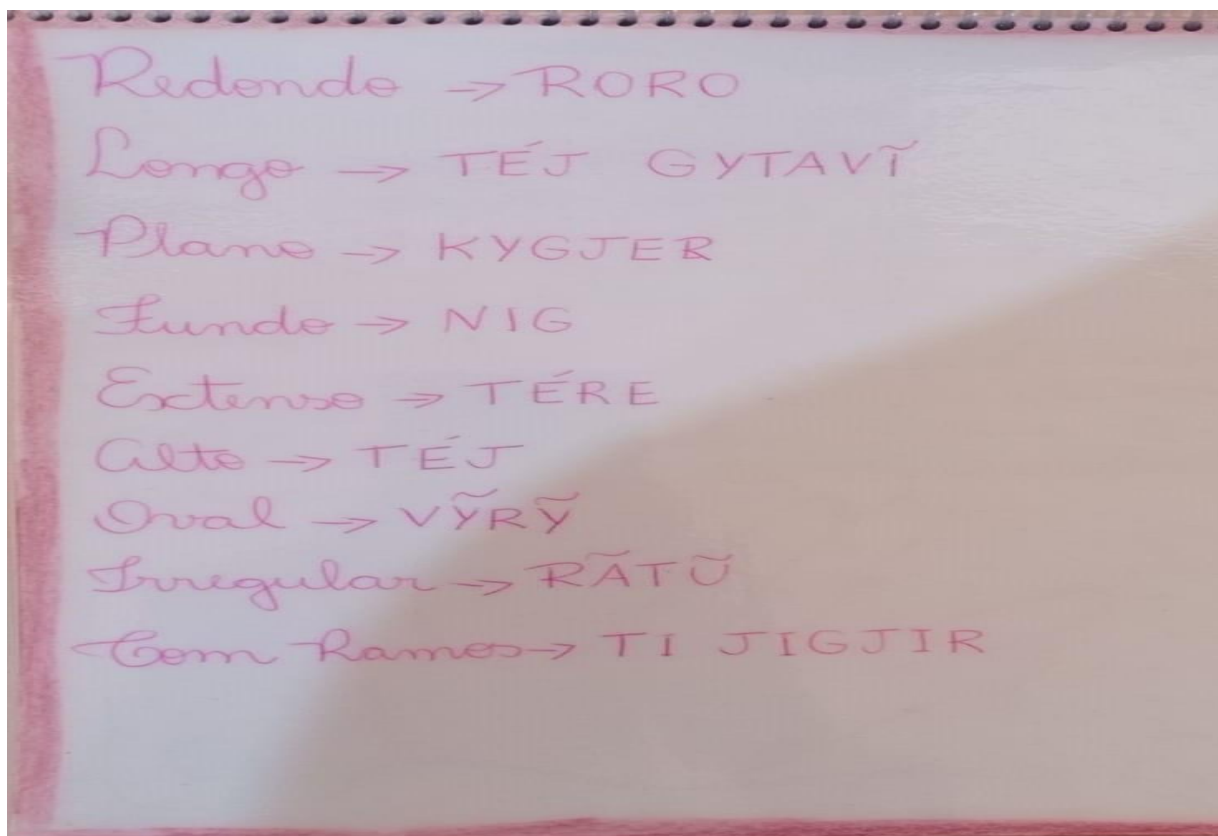 Redondo → RORO
Longo → TÉJ GYTAVĨ
Plano → KYGJER
Fundo → NIG
Extenso → TÉRE
Alto → TÉJ
Oval → VỸRỸ
Irregular → RÃTŨ
Com Ramos → TI JIGJIR